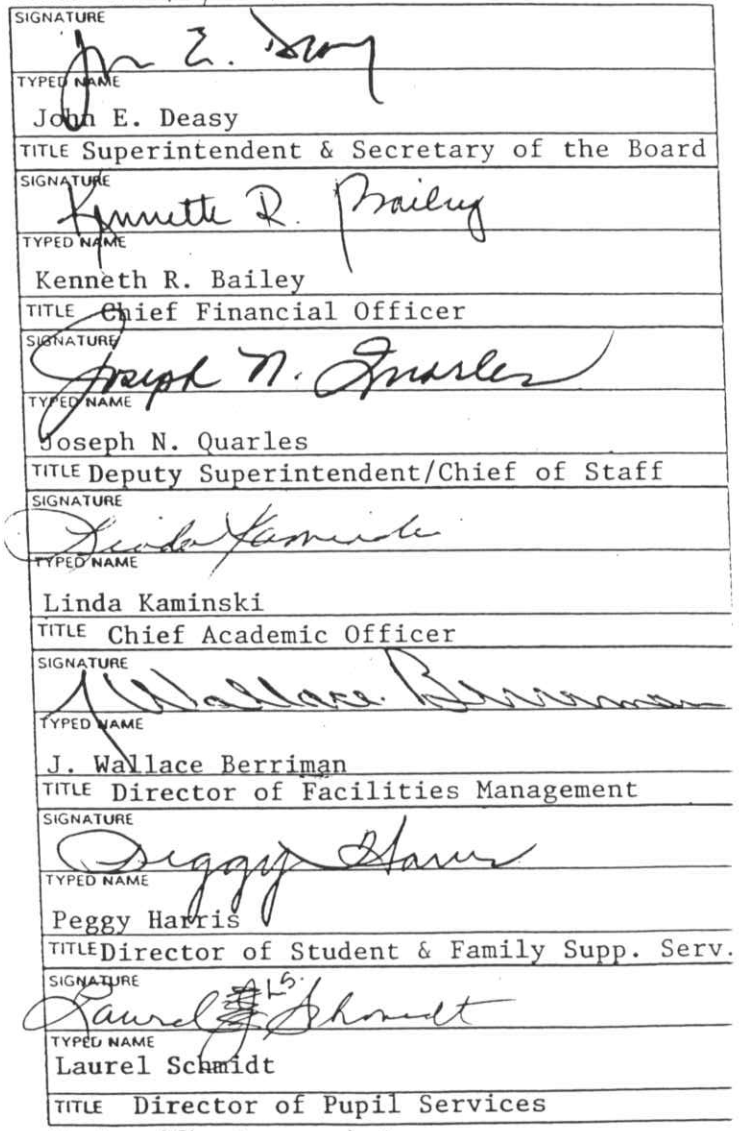 SIGNATURE
John E. Deasy
TYPED NAME
John E. Deasy
TITLE Superintendent & Secretary of the Board
SIGNATURE
Kennette R. Bailey
TYPED NAME
Kenneth R. Bailey
TITLE Chief Financial Officer
SIGNATURE
Joseph N. Quarles
TYPED NAME
Joseph N. Quarles
TITLE Deputy Superintendent/Chief of Staff
SIGNATURE
Linda Kaminski
TYPED NAME
Linda Kaminski
TITLE Chief Academic Officer
SIGNATURE
J Wallace Berriman
TYPED NAME
J. Wallace Berriman
TITLE Director of Facilities Management
SIGNATURE
Peggy Harris
TYPED NAME
Peggy Harris
TITLE Director of Student & Family Supp. Serv.
SIGNATURE
LS.
Laurel Schmidt
TYPED NAME
Laurel Schmidt
TITLE Director of Pupil Services